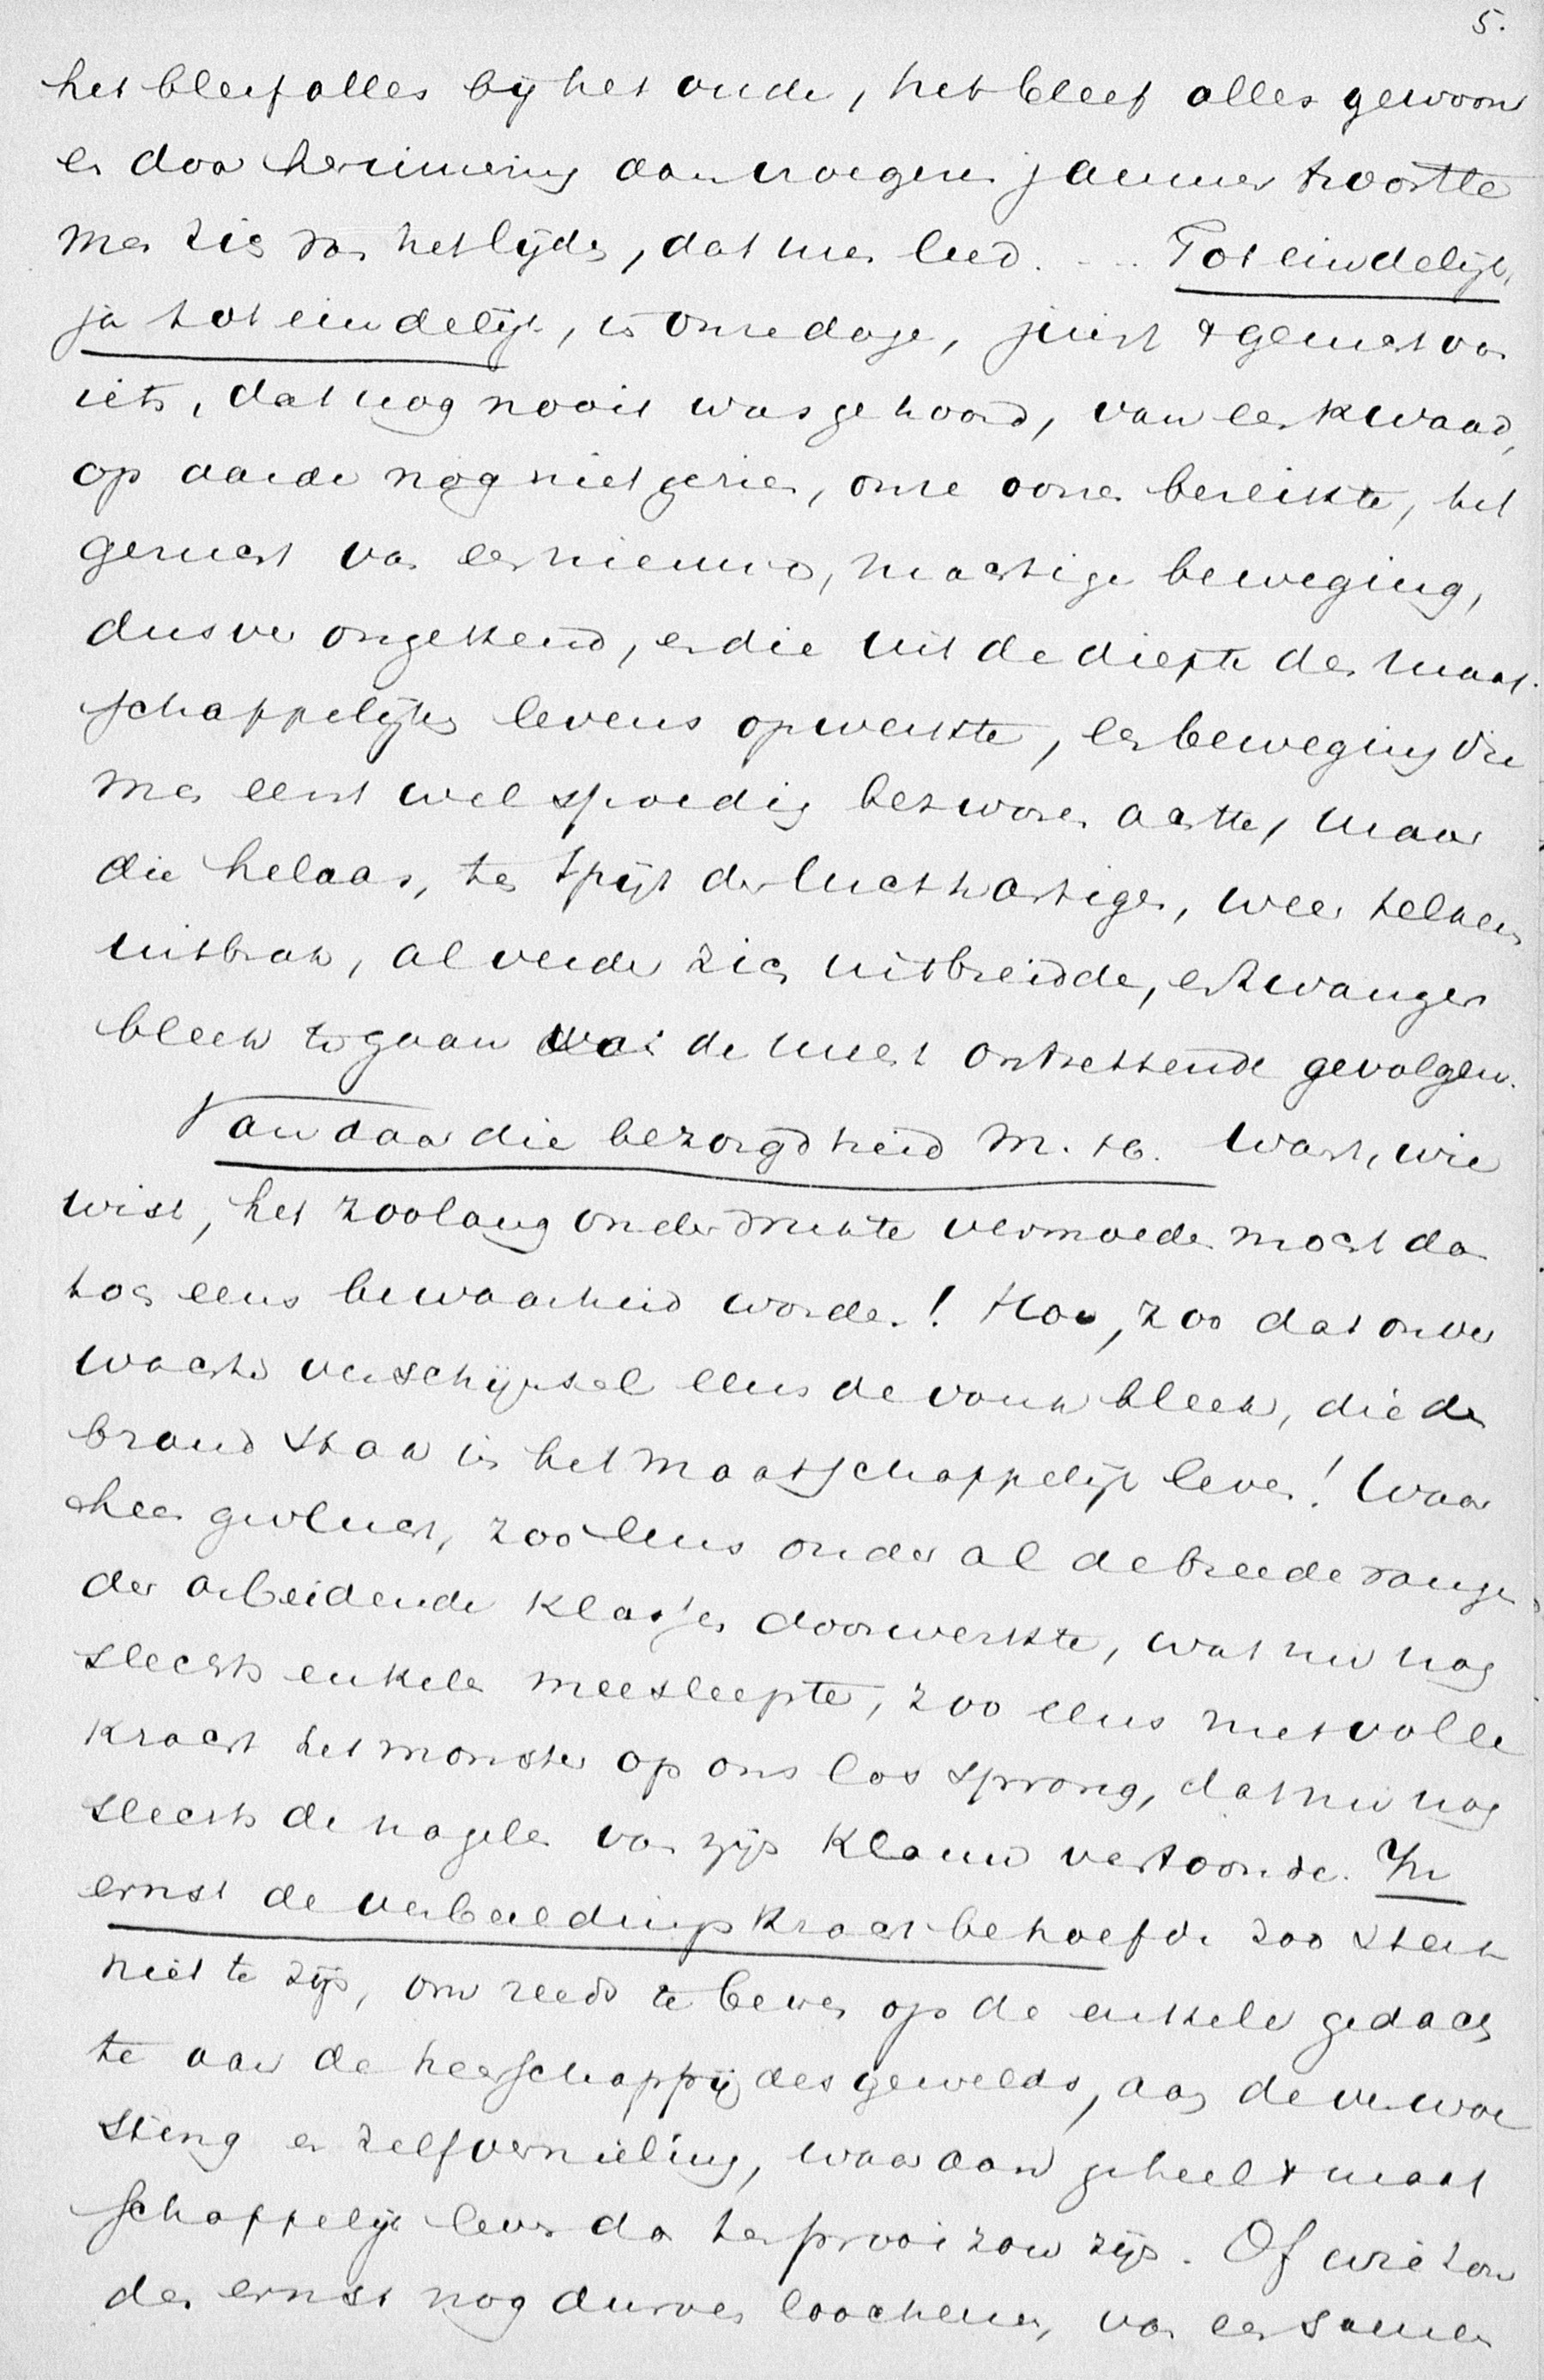 5.
het bleef alles bij het oude, het bleef alles gewoon
en door herinnering aan vroegeren jammer troostte
men zich van het lijden, dat men leed. . . . Tot eindelijk,
ja tot eindelijk, in onze dagen, juist 't gerucht van
iets, dat nog nooit was gehoord, van een kwaad,
op aarde nog niet gezien, onze ooren bereikte, het
gerucht van een nieuwe, machtige beweging,
dusver ongekend, en die uit de diepte des maat-
schappelijken levens opwerkte, een beweging die
men eerst wel spoedig bezworen achtte, maar
die helaas, ten spijt der luchthartigen, weer telkens
uitbrak, al verder zich uitbreidde, en zwanger
bleek te gaan van de meest ontzettende gevolgen.
Vandaar die bezorgdheid M. H. Want, wie
wist, het zoolang onderdrukte vermoeden mocht dan
toch eens bewaarheid worden! Hoe, zoo dat onver
wachte verschijnsel eens de vonk bleek, die den
brand stak in het maatschappelijk leven! Waar
heen gevlucht, zoo eens onder al de breede rangen
der arbeidende klassen doorwerkte, wat nu nog
slechts enkelen meesleepte, zoo eens met volle
kracht het monster op ons los sprong, dat nu nog
slechts de nagels van zijn klauw vertoonde. In
ernst de verbeeldingskracht behoefde zoo sterk
niet te zijn, om reeds te beven op de enkele gedach
te aan de heerschappij des gewelds, aan de verwoe
sting en zelfvernieling, waaraan geheel 't maat
schappelijk leven dan ten prooi zou zijn. Of wie zou
den ernst nog durven loochenen, van een samen